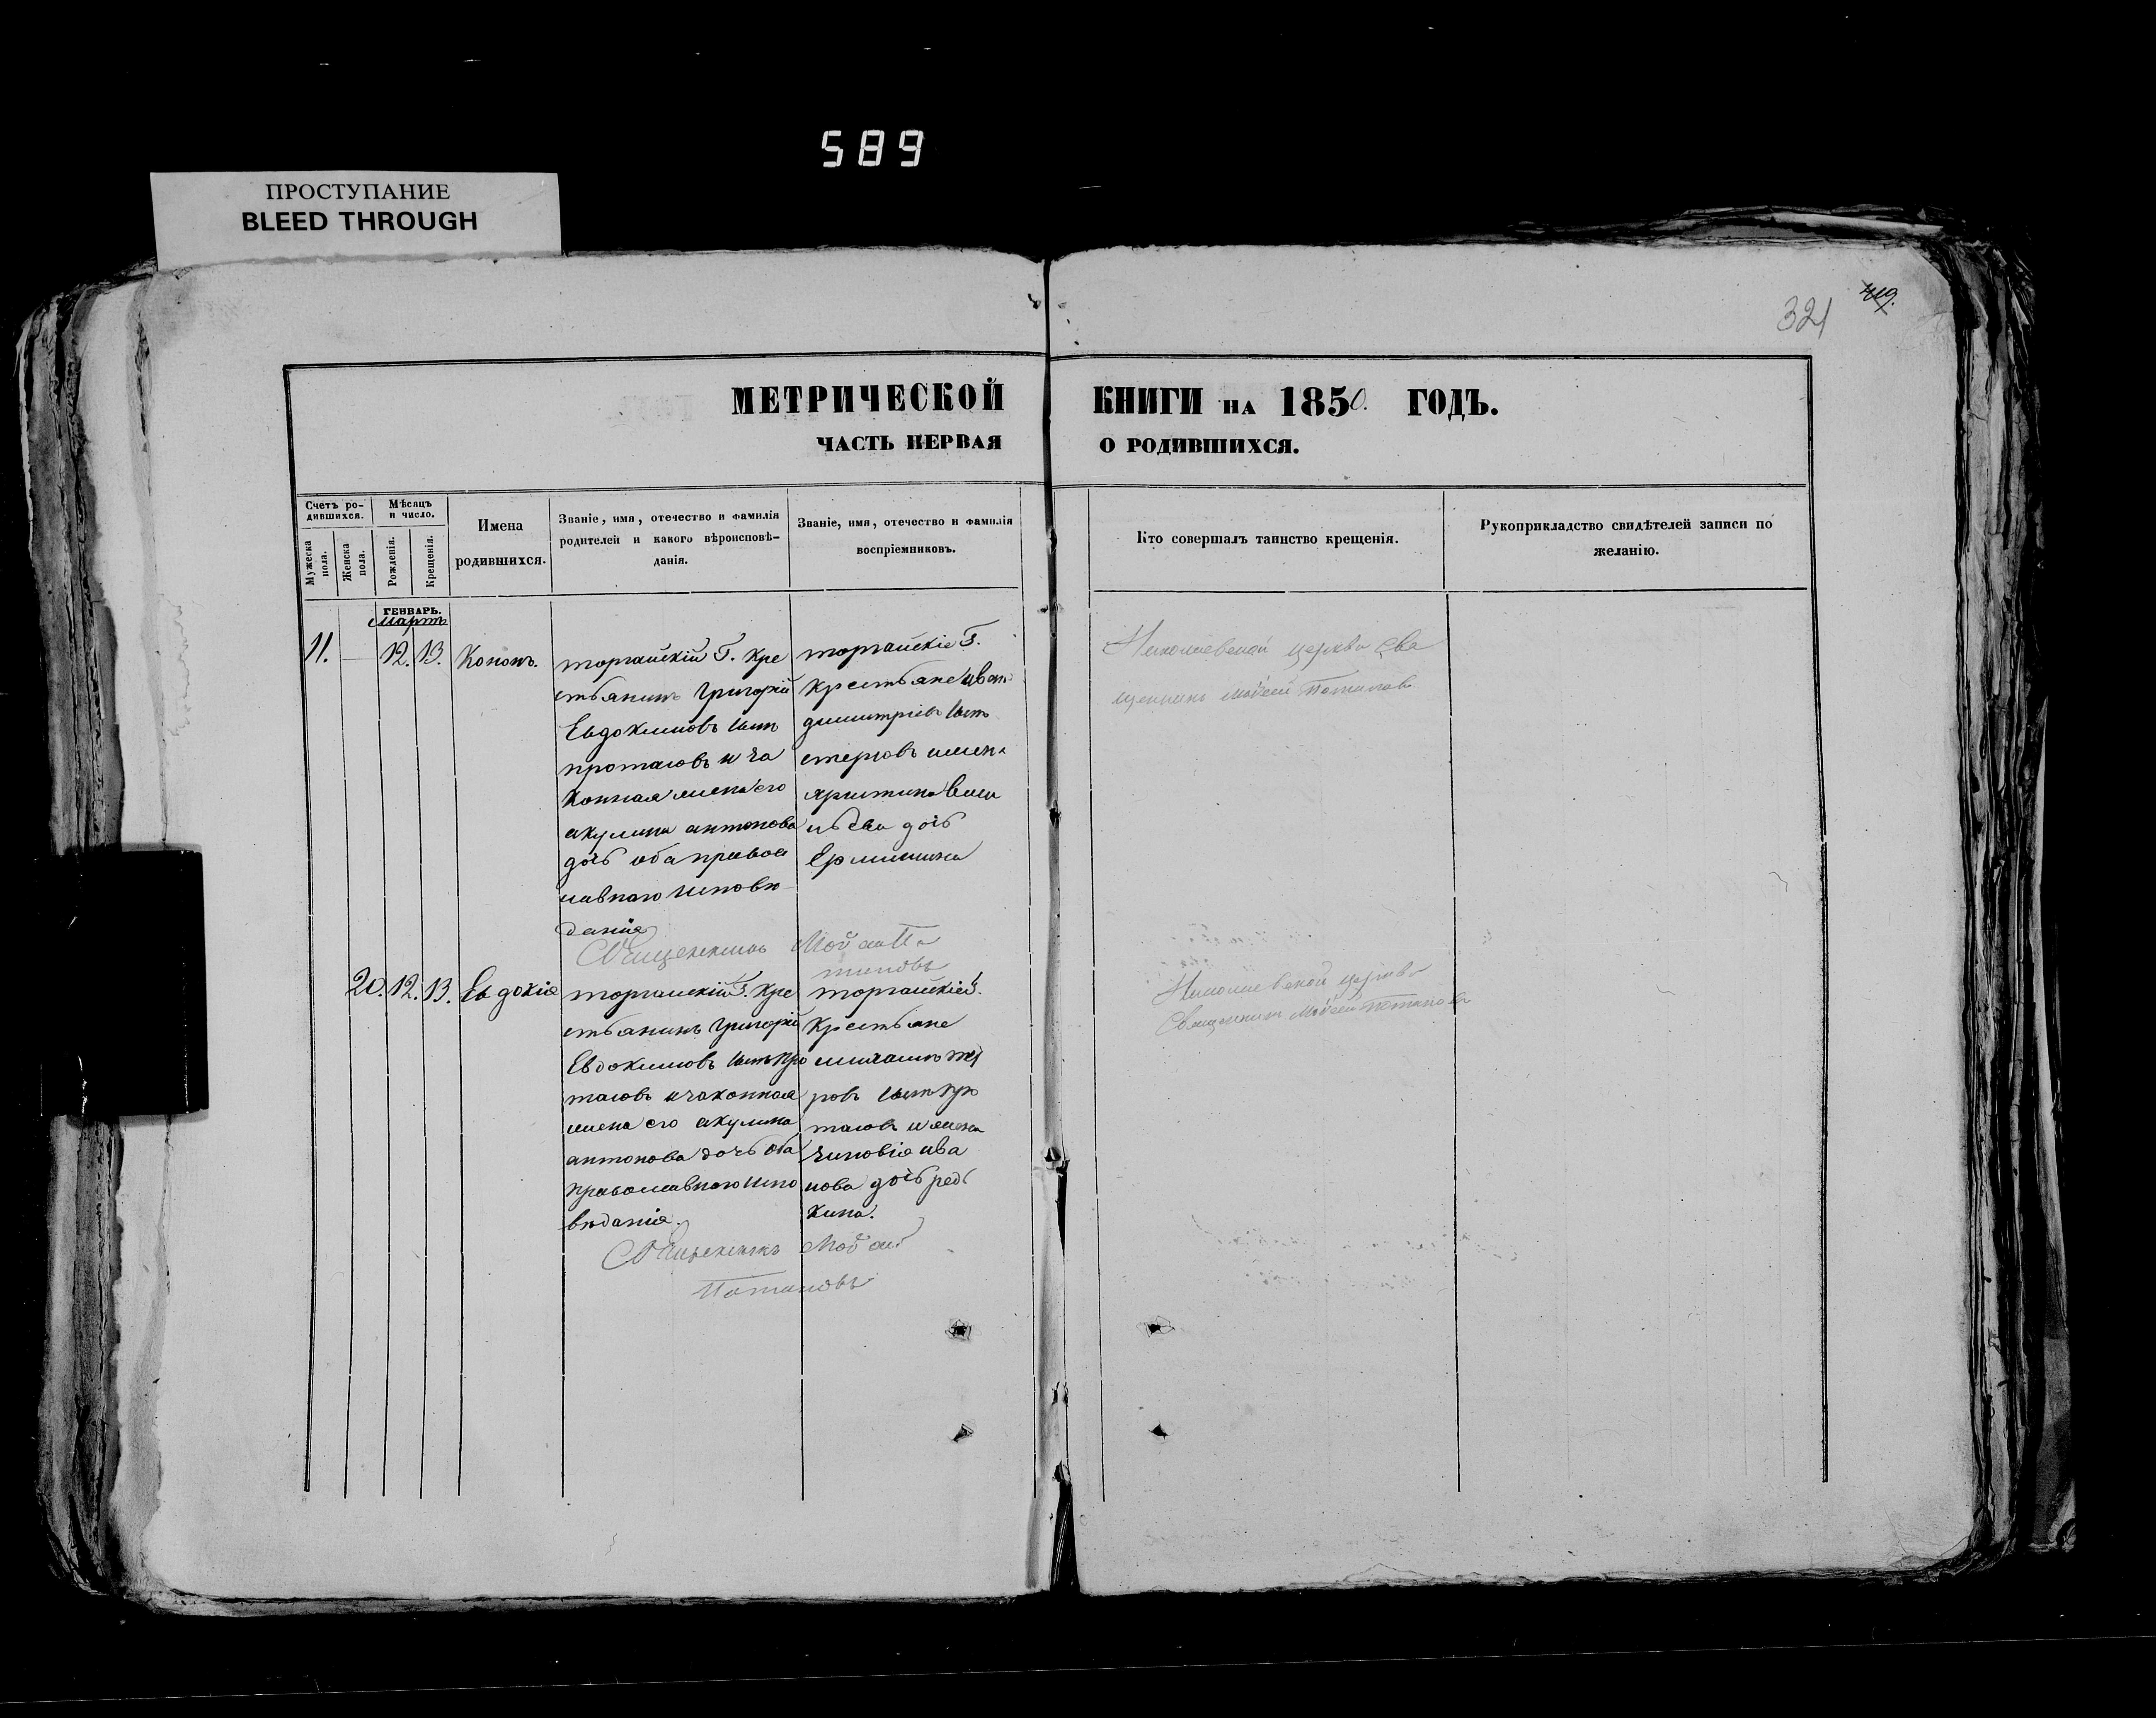 589
ПРОСТУПАНИЕ
BLEED THROUGH
321
419.
МЕТРИЧЕСКОЙ КНИГИ НА 1850. ГОДЪ.
ЧАСТЬ ПЕРВАЯ О РОДИВШИХСЯ.
Счетъ ро-
дившихся.
Мужеска пола.
Женска пола.
Мѣсяцъ
и число.
Рожденія.
Крещенія.
Имена
родившихся.
Званіе, имя, отечество и фамилія
родителей и какого вѣроисповѣ-
данія.
Званіе, имя, отечество и фамилія
воспріемниковъ.
Кто совершалъ таинство крещенія.
Рукоприкладство свидѣтелей записи по
желанію.
ГЕНВАРЬ.
Мартъ
11. — 12. 13. Кононъ.
торгашскій Г. Кре
стьянинъ Григорій
Евдокимовъ сынъ
протасовъ и за
конная жена его
акулина антонова
дочь оба правос
лавнаго исповѣ
данія
торгашскіе Г.
Крестьяне иван
димитріевъ сынъ
дочь
Николаевской церкви Свя
щенникъ Мойсей Потапов
Священникъ Мойсей По
таповъ
20. 12. 13. Евдокія
торгашскій Г. Кре
стьянинъ Григорій
Евдокимовъ сынъ про
тасовъ и законная
жена его акулина
антонова дочь оба
православнаго испо
вѣданія.
торгашскіе Г.
Крестьяне
ровъ сынъ про
тасовъ и жена
зиновія ива
нова дочь редь
кина.
Николаевской церкви
Священникъ Мойсей Потапов
Священникъ Мойсей
Потаповъ